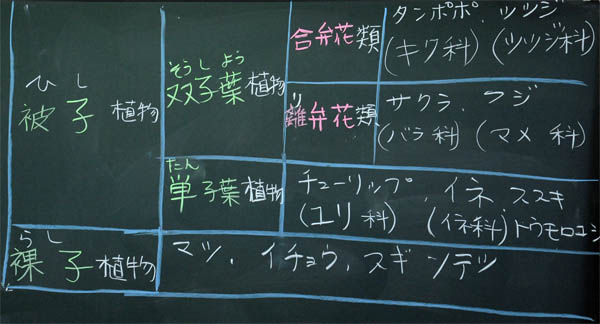 タンポポ、ツツジ
合弁花類 (キク科) (ツツジ科)
ひし
被子植物
そうしよう
双子葉植物
り
離弁花類
サクラ、フジ
(バラ科) (マメ科)
たん
単子葉植物
チューリップ、イネ、ススキ
(ユリ科) (イネ科)トウモロコシ
らし
裸子植物
マツ、イチョウ、スギ ソテツ